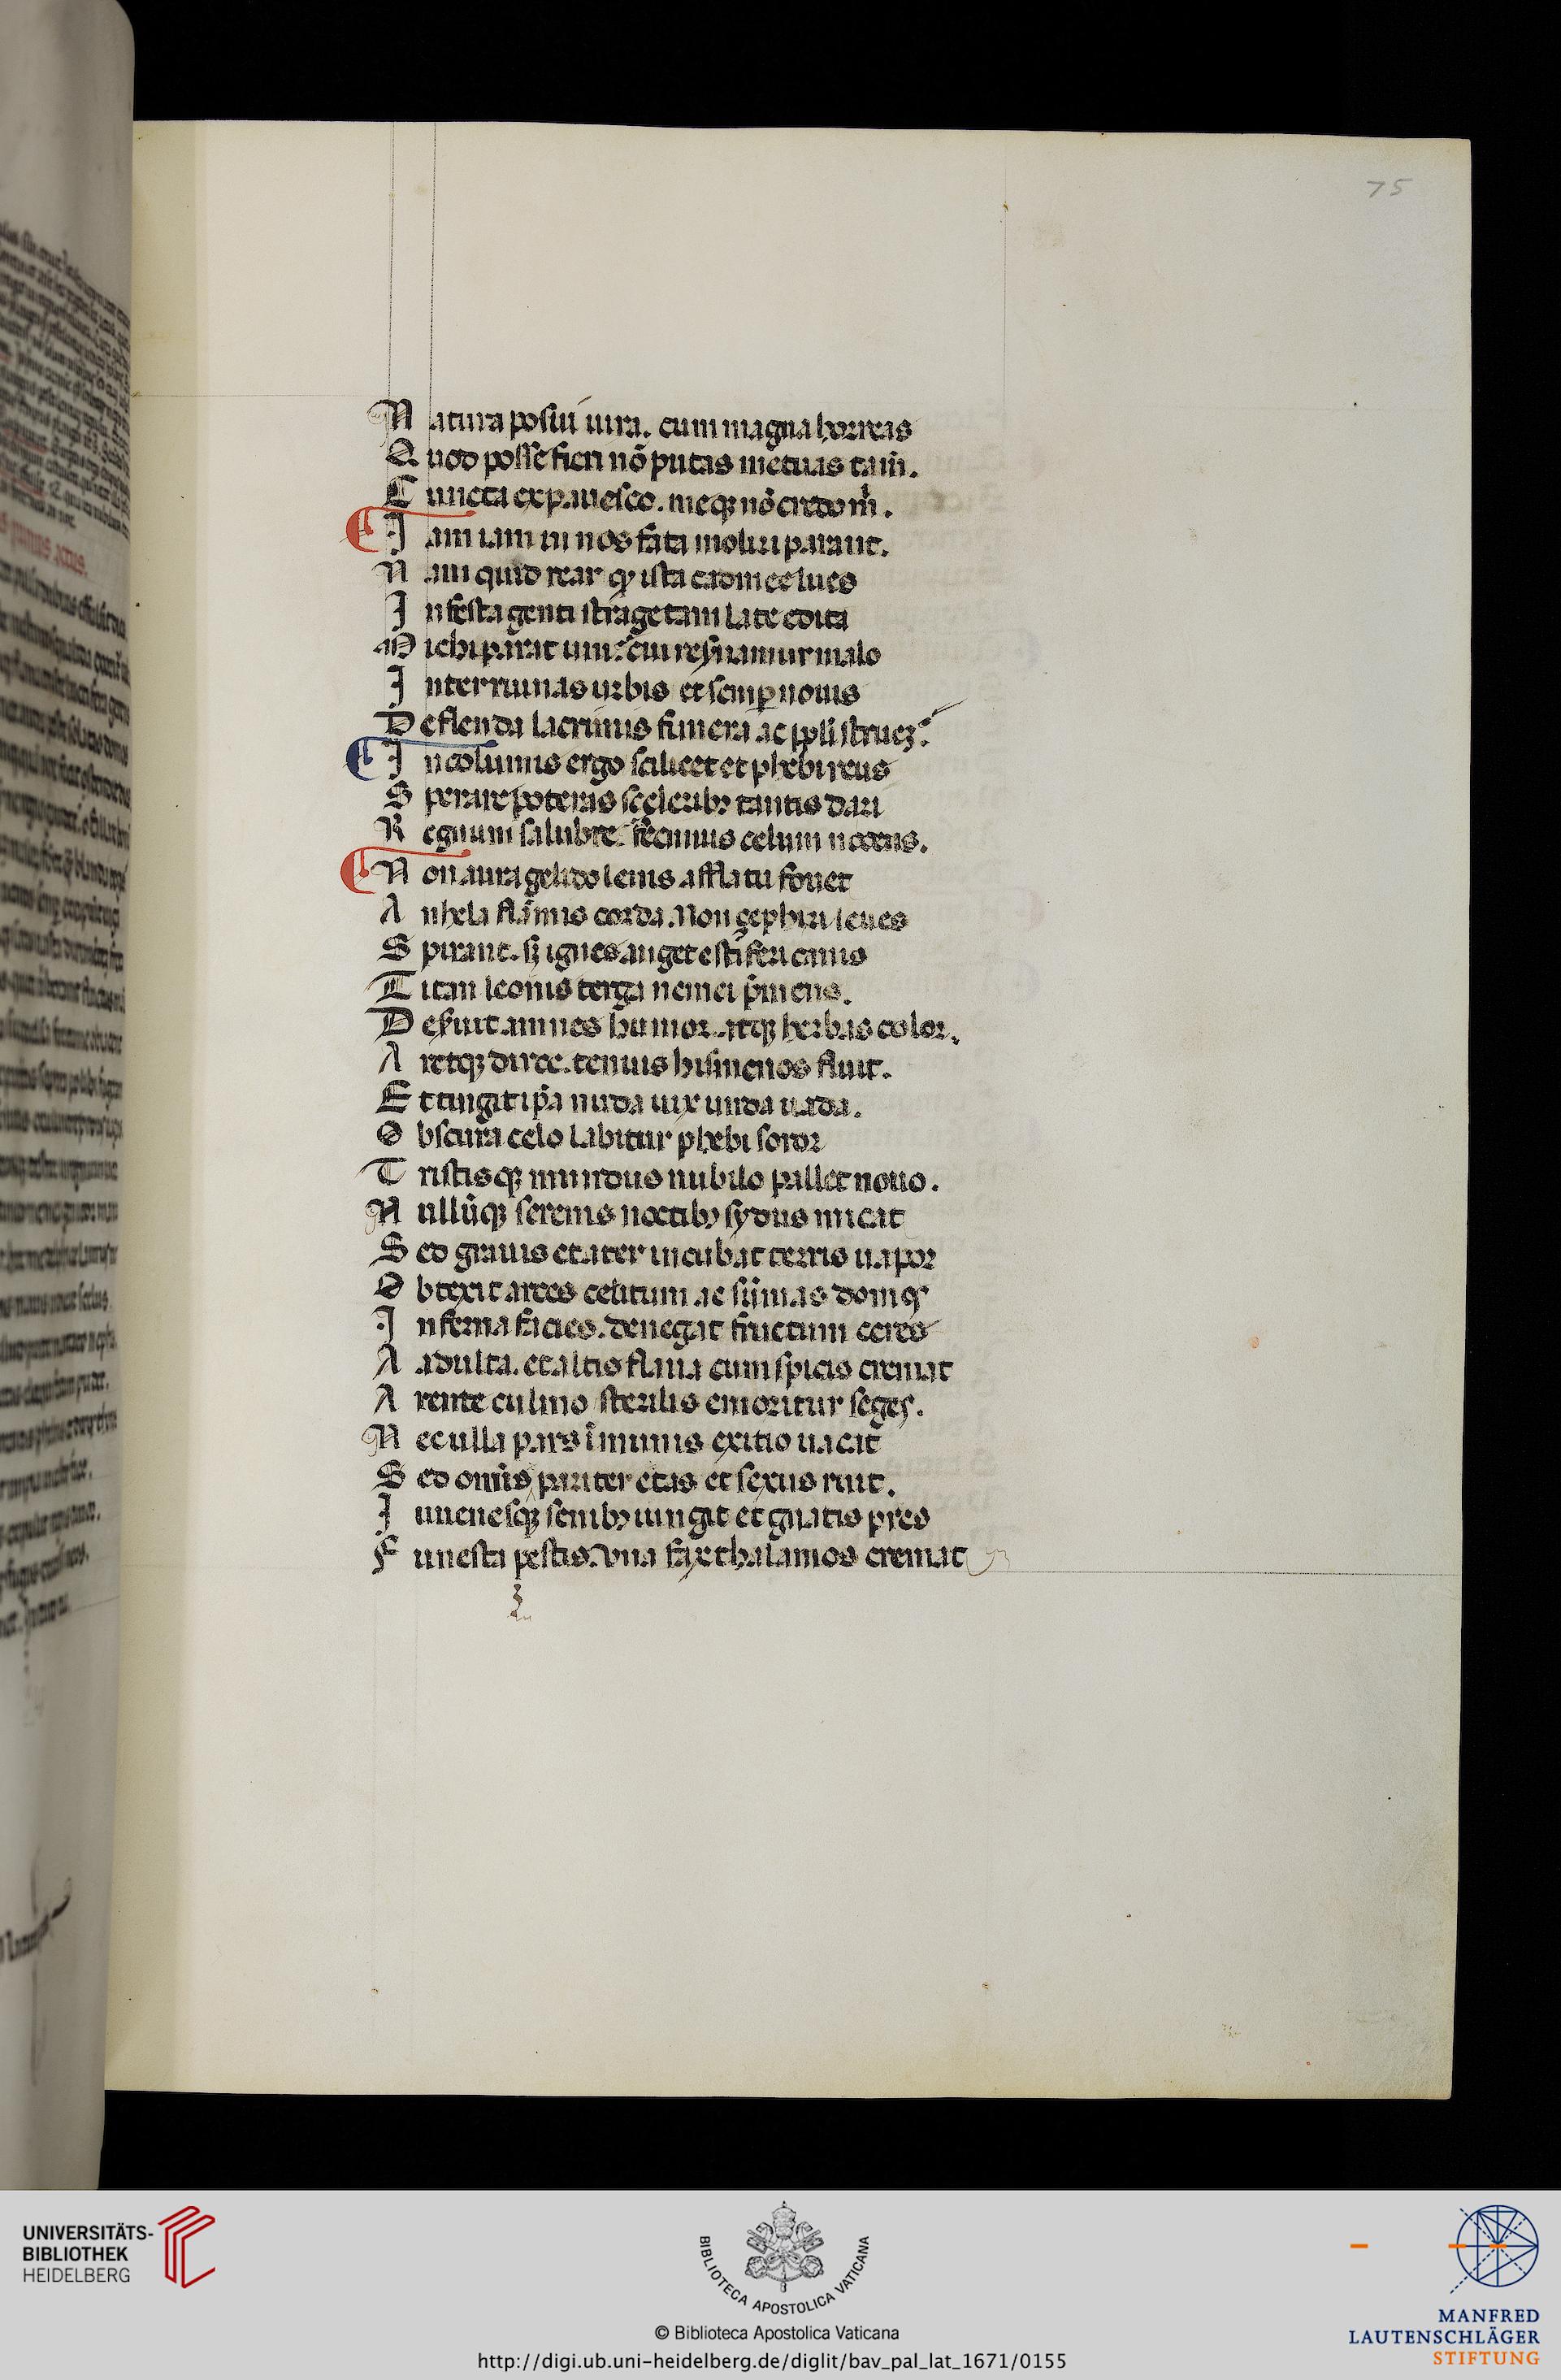 75
N atura posui iura. cum magna horreas
Q uod posse fieri nō putas metuas tam̄.
C uncta expauesco. meq; nō credo m̄.
I am iam in nos fata moliri parant.
N am quid rear q̨ ista cadmee lues
I nfesta genti strage tam late edita
M ichi parcat uni: cui reseruamur malo
I nter ruinas urbis et semp nouis
D eflenda lacrimis funera ac ppli struez.
I ncolumis ergo scilicet et phebi reus
S perare poteras sceleribꝫ tantis dari
R egnum salubre. fecimus celum nocens.
N on aura gelido lenis afflatu fouet
A nhela flāmis corda. Non zephiri leues
S pirant. sꝫ ignes auget estiferi canis
T itan leonis terga nemei p̄mens.
D eseruit amnes humor. atqꝫ herbas color.
A retqꝫ dirce. tenuis hismenos fluit.
E t tingit ip̄a nuda uix unda uada.
O bscura celo labitur phebi soror
T ristisqꝫ mundus nubilo pallet nouo.
N ullūqꝫ serenis noctibꝫ sydus micat
S ed grauis et ater incubat terris uapor
O btexit arces celitum ac sūmas domꝰ
I nferna facies. denegat fructum ceres
A adulta. et altis flaua cum spicis cremat
A rente culmo sterilis emoritur seges.
N ec ulla pars īmunis exitio uacat
S ed omīs pariter etas et sexus ruit.
I uuenesqꝫ senibꝫ iungit et gnatis pr̄es
F unesta pestis. Vna fax thalamos cremat
UNIVERSITÄTS-
BIBLIOTHEK
HEIDELBERG
BIBLIOTECA APOSTOLICA VATICANA
© Biblioteca Apostolica Vaticana
http://digi.ub.uni-heidelberg.de/diglit/bav_pal_lat_1671/0155
MANFRED
LAUTENSCHLÄGER
STIFTUNG